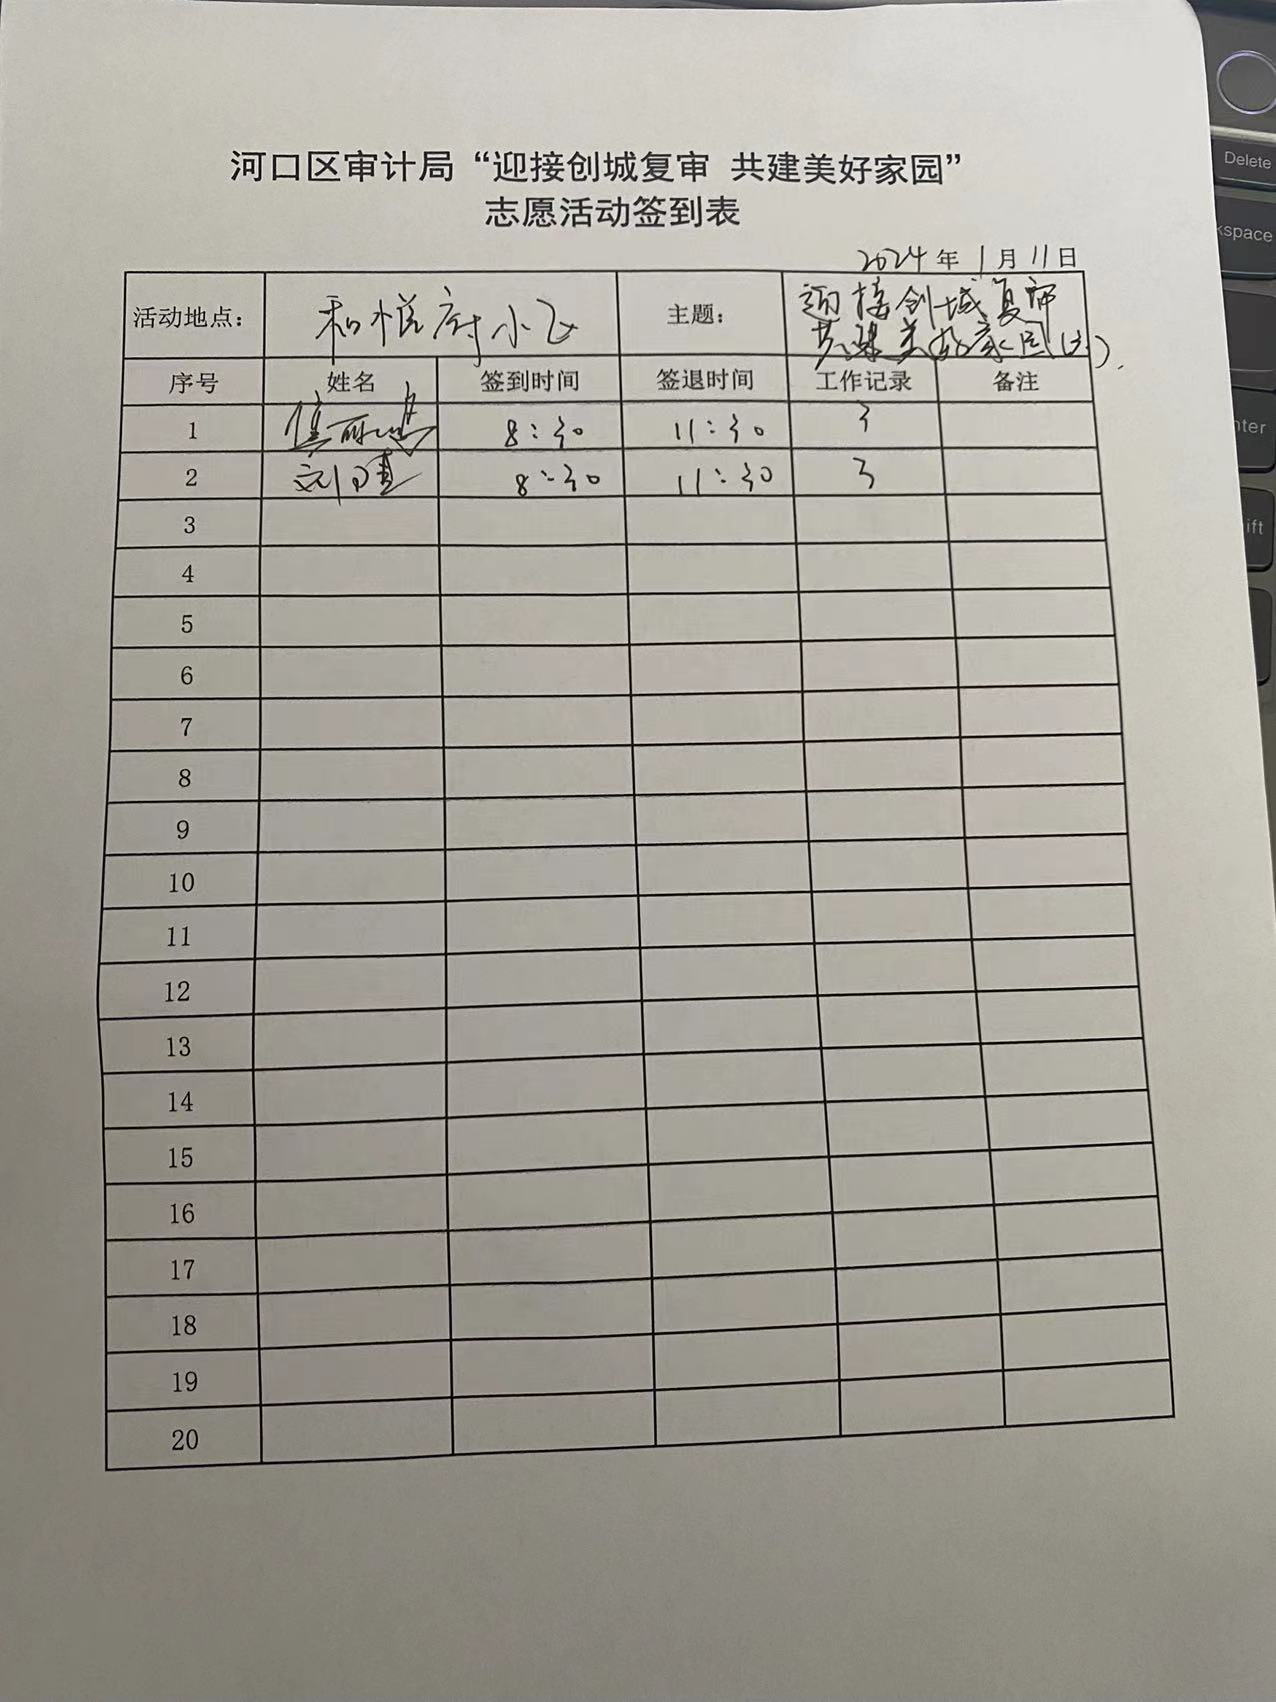 河口区审计局“迎接创城复审 共建美好家园”
志愿活动签到表
2024年1月11日
活动地点： 和悦府小区 主题： 迎接创城复审
共建美好家园(六).
序号 姓名 签到时间 签退时间 工作记录 备注
1 8:30 11:30 3
2 刘 8:30 11:30 3
3
4
5
6
7
8
9
10
11
12
13
14
15
16
17
18
19
20
Delete
kspace
nter
ift